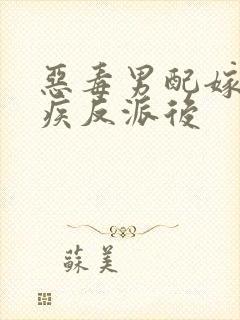 惡毒男配嫁
疾反派後
蘇美